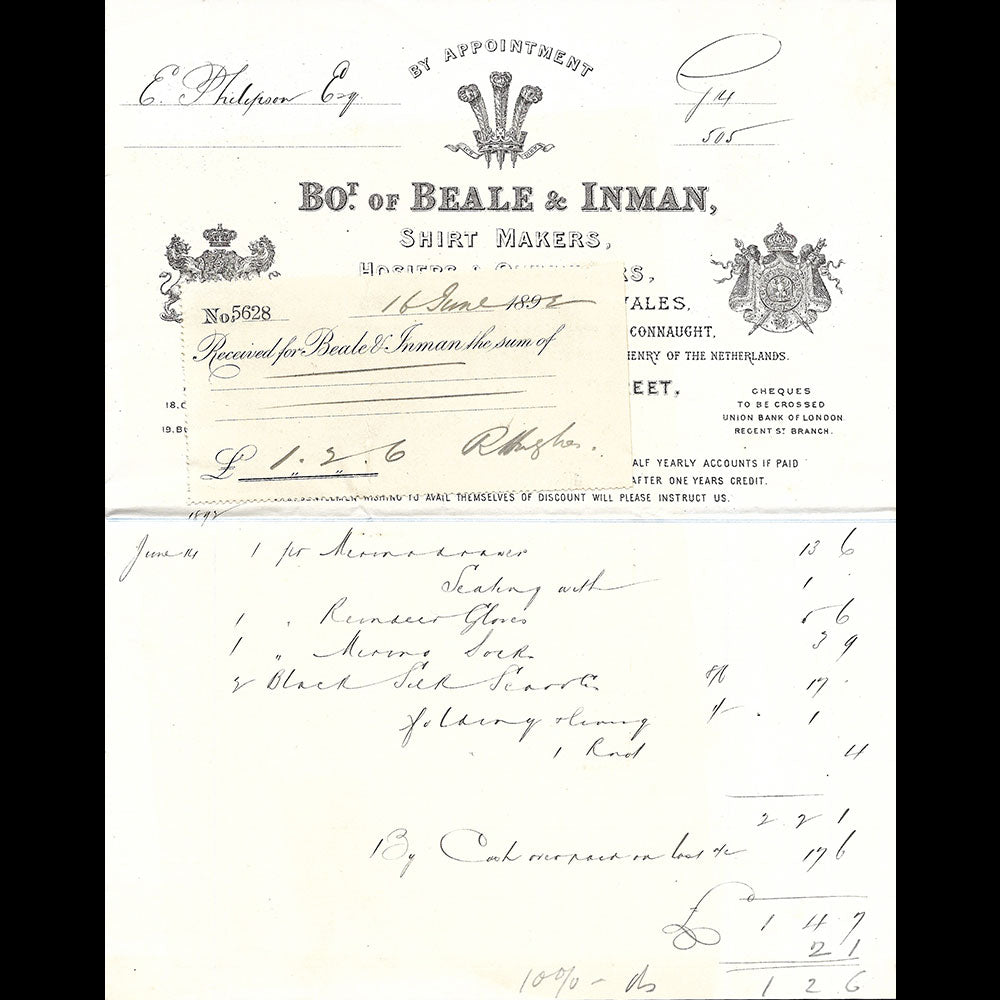 E. Philipson Esq
BY APPOINTMENT
G 14
505
BOT. OF BEALE & INMAN,
SHIRT MAKERS,
HOSIERS &
RS,
WALES,
CONNAUGHT,
HENRY OF THE NETHERLANDS.
EET,
18.
19.
CHEQUES
TO BE CROSSED
UNION BANK OF LONDON
REGENT ST BRANCH.
No. 5628 16 June 1892
Received for Beale & Inman the sum of
£ 1 " 2 " 6 R Hughes.
ALF YEARLY ACCOUNTS IF PAID
AFTER ONE YEARS CREDIT.
WISHING TO AVAIL THEMSELVES OF DISCOUNT WILL PLEASE INSTRUCT US.
1892
June 14 1 pr Merino drawers 13 6
Seating with 1
1 " Reindeer Gloves 5 6
1 " Merino Socks 3 9
2 Black Silk Scarfs 8/6 17
folding & lining 1
1 4
2 2 1
By Cash overpaid on last a/c 17 6
£ 1 4 7
2 1
10% - 1 2 6